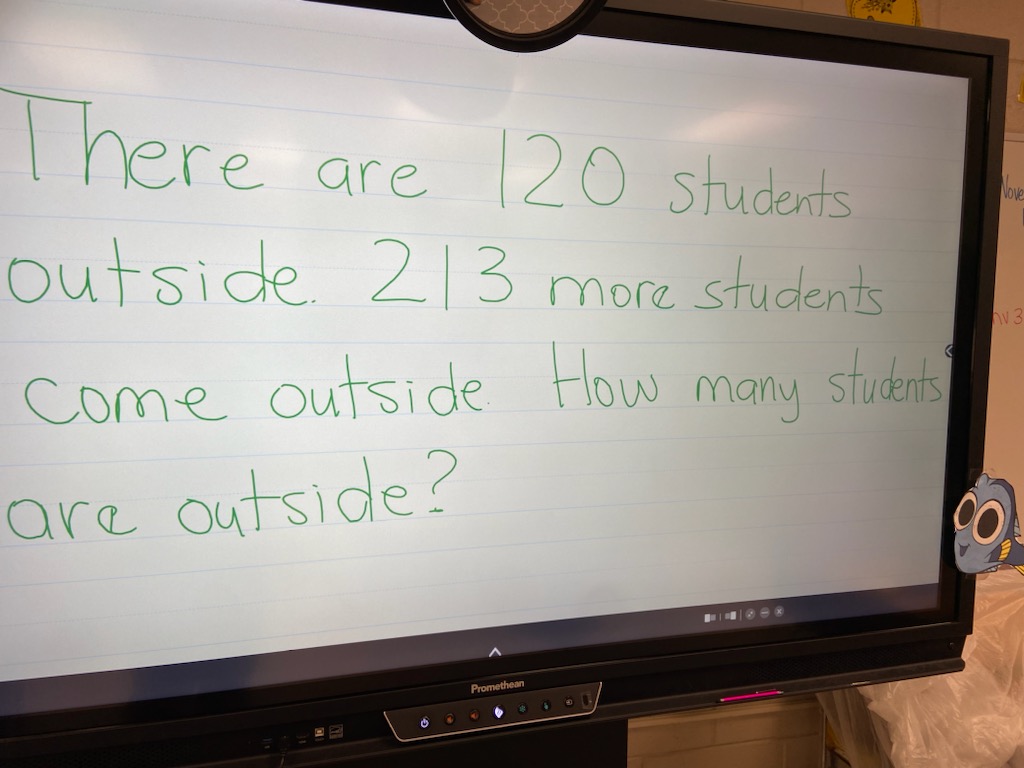 There are 120 students
outside. 213 more students
come outside. How many students
are outside?
Promethean